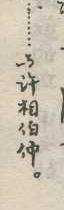 ……与许相伯仲。